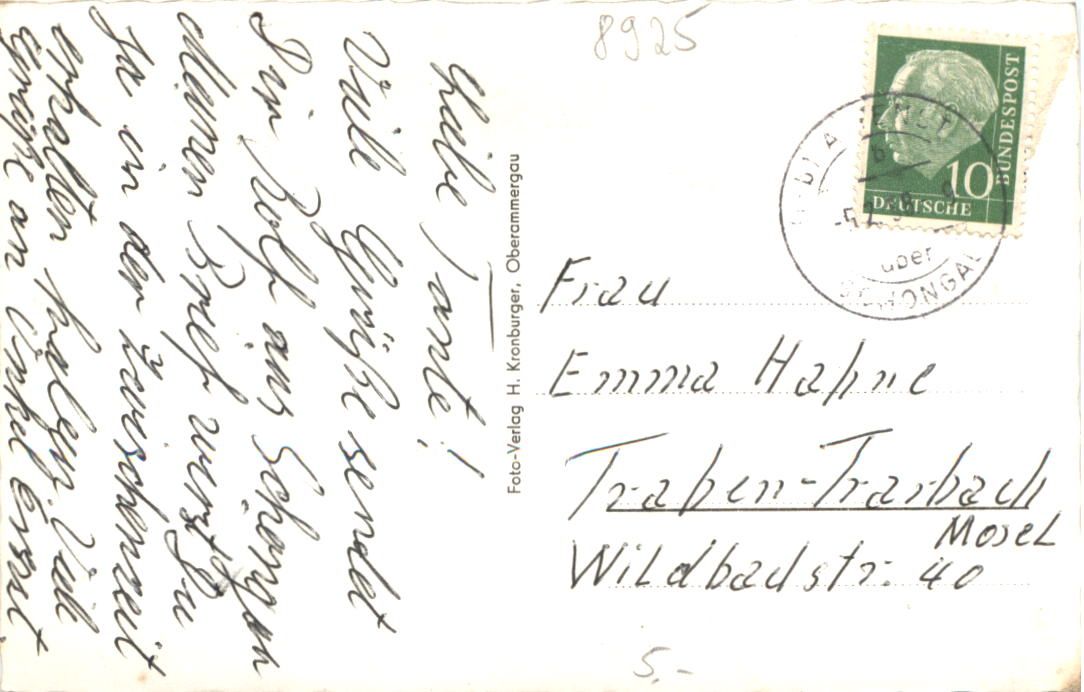 Liebe Tante!
Viele Grüße sendet
Dir Rolf aus Schongau
Meinen Brief wirst Du
Ja in der Zwischenzeit
erhalten haben. Viele
Grüße an Onkel Ernst.
Foto-Verlag H. Kronburger, Oberammergau
8925
BUNDESPOST
10
DEUTSCHE
über
SCHONGAU
Frau
Emma Hahne
Traben-Trarbach
Mosel
Wildbadstr. 40
5,-